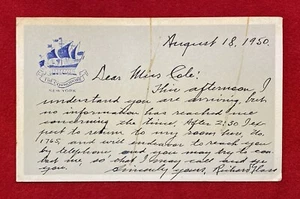 August 18, 1950.
THE COMMODORE
NEW YORK
Dear Miss Cole:
This afternoon, I
understand you are arriving, but
no information has reached me
concerning the time. After 2:30 I ex-
pect to return to my room here, No.
1765, and will endeavor to reach you
by telephone and you may try to con-
tact me, so that I may call and see
you.
Sincerely yours, Richard